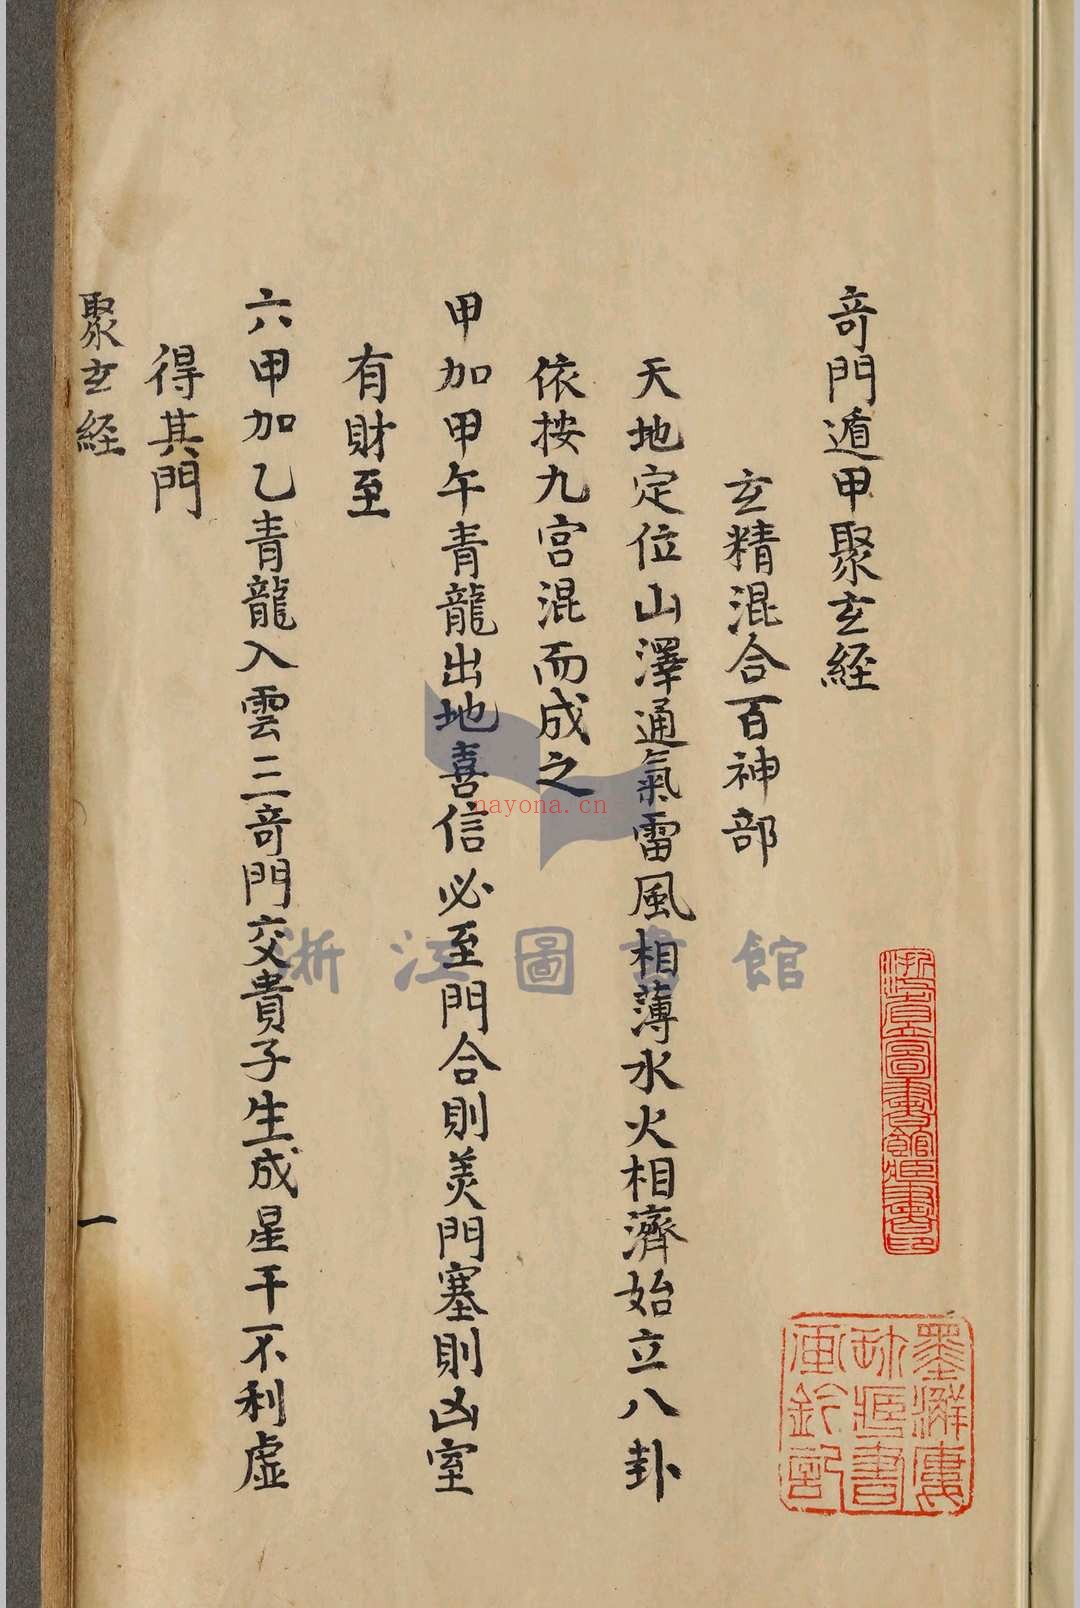 奇門遁甲聚玄経
玄精混合百神部
天地定位山澤通氣雷風相薄水火相濟始立八卦
依按九宮混而成之
甲加甲午青龍出地喜信必至門合則美門塞則凶室
有財至
六甲加乙青龍入雲三奇門交貴子生成星干不利虛
得其門
聚玄経
一
浙江圖書館
nayona.cn